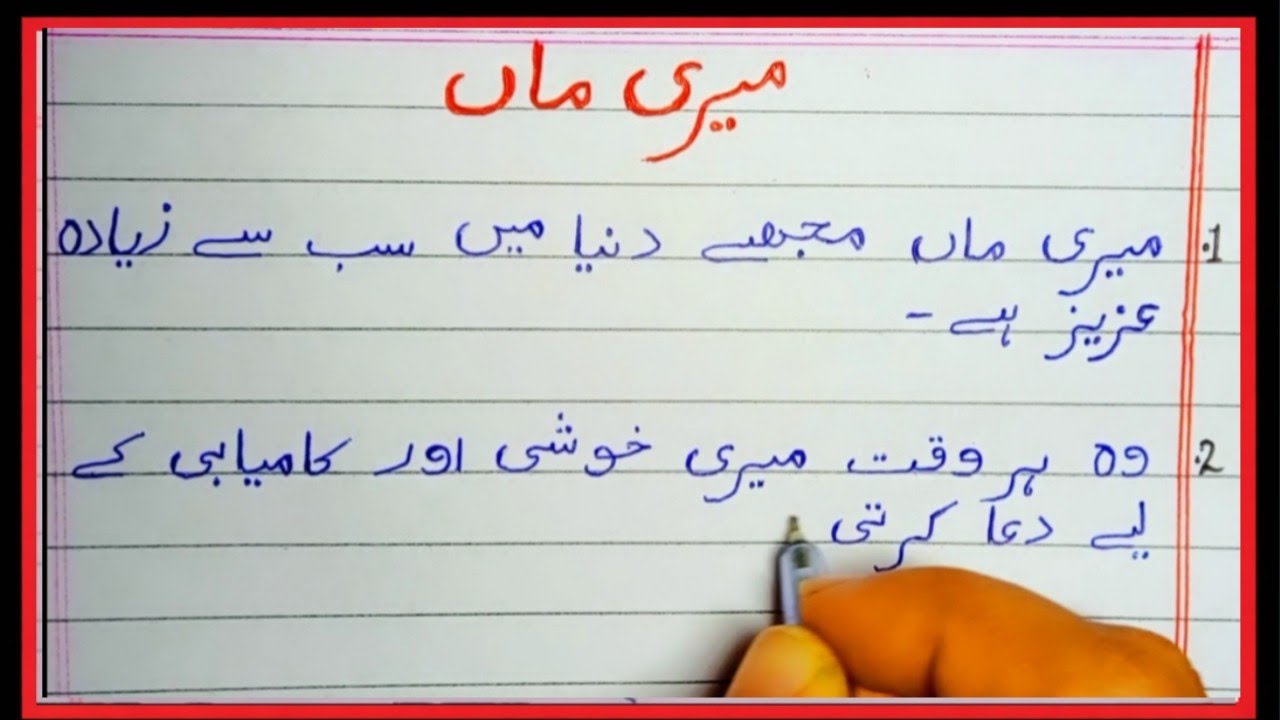 میری ماں
1. میری ماں مجھے دنیا میں سب سے زیادہ
عزیز ہے -
2. وہ ہر وقت میری خوشی اور کامیابی کے
لیے دعا کرتی